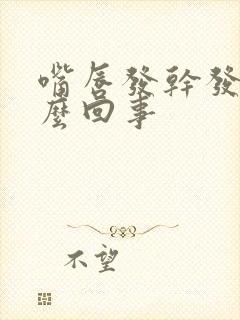 嘴唇發幹發
麼回事
不望